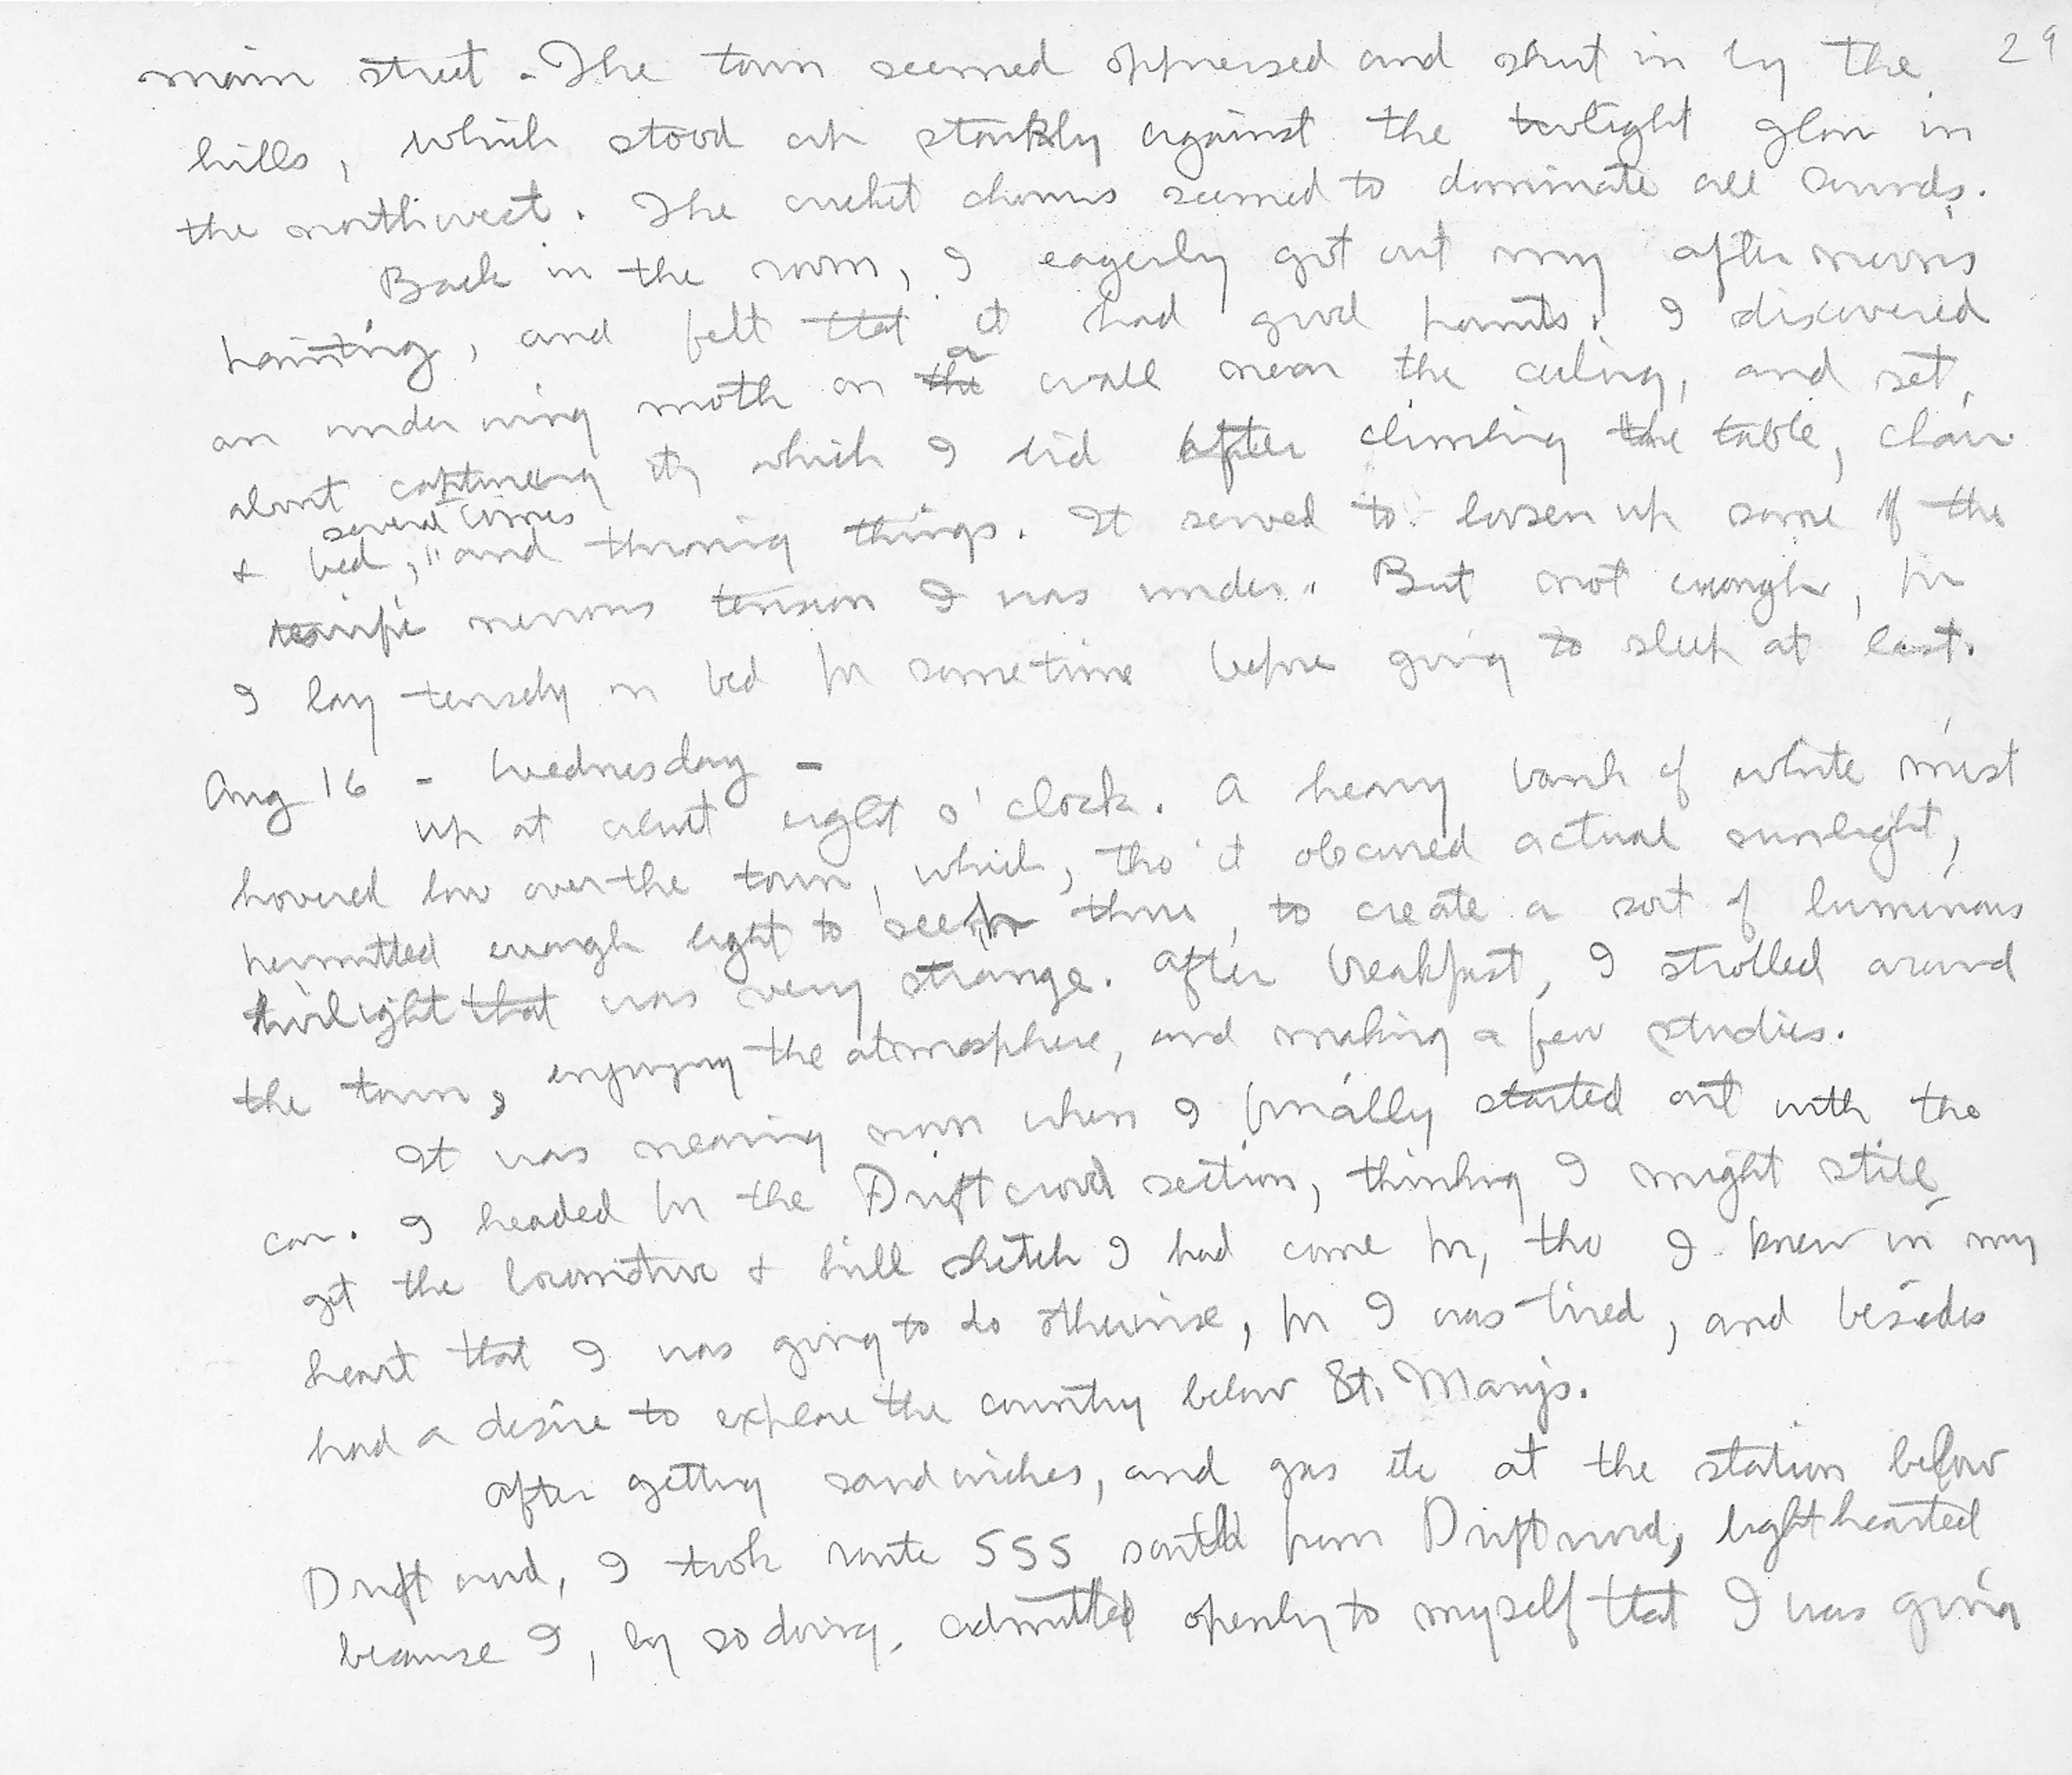 29
main street. The town seemed oppressed and shut in by the
hills, which stood up starkly against the twilight glow in
the northwest. The cricket chorus seemed to dominate all sounds.
Back in the room, I eagerly got out my afternoons
painting, and felt that it had good points. I discovered
a
an underwing moth on the wall near the ceiling, and set
about capturing it, which I did after climbing the table, chair
several times
& bed, " and throwing things. It served to loosen up some of the
terrific nervous tension I was under. But not enough, for
I lay tensely in bed for sometime before going to sleep at last.
Aug 16 - Wednesday -
Up at about eight o'clock. A heavy bank of white mist
hovered low over the town, which, tho it obscured actual sunlight,
permitted enough light to seep thru, to create a sort of luminous
twilight that was very strange. After breakfast, I strolled around
the town, enjoying the atmosphere, and making a few studies.
It was nearing noon when I finally started out with the
car. I headed for the Driftwood section, thinking I might still
get the locomotive & hill sketch I had come for, tho I knew in my
heart that I was going to do otherwise, for I was tired, and besides
had a desire to explore the country below St. Marys.
After getting sandwiches, and gas etc at the station below
Driftwood, I took route 555 south from Driftwood, lighthearted
because I, by so doing, admitted openly to myself that I was going